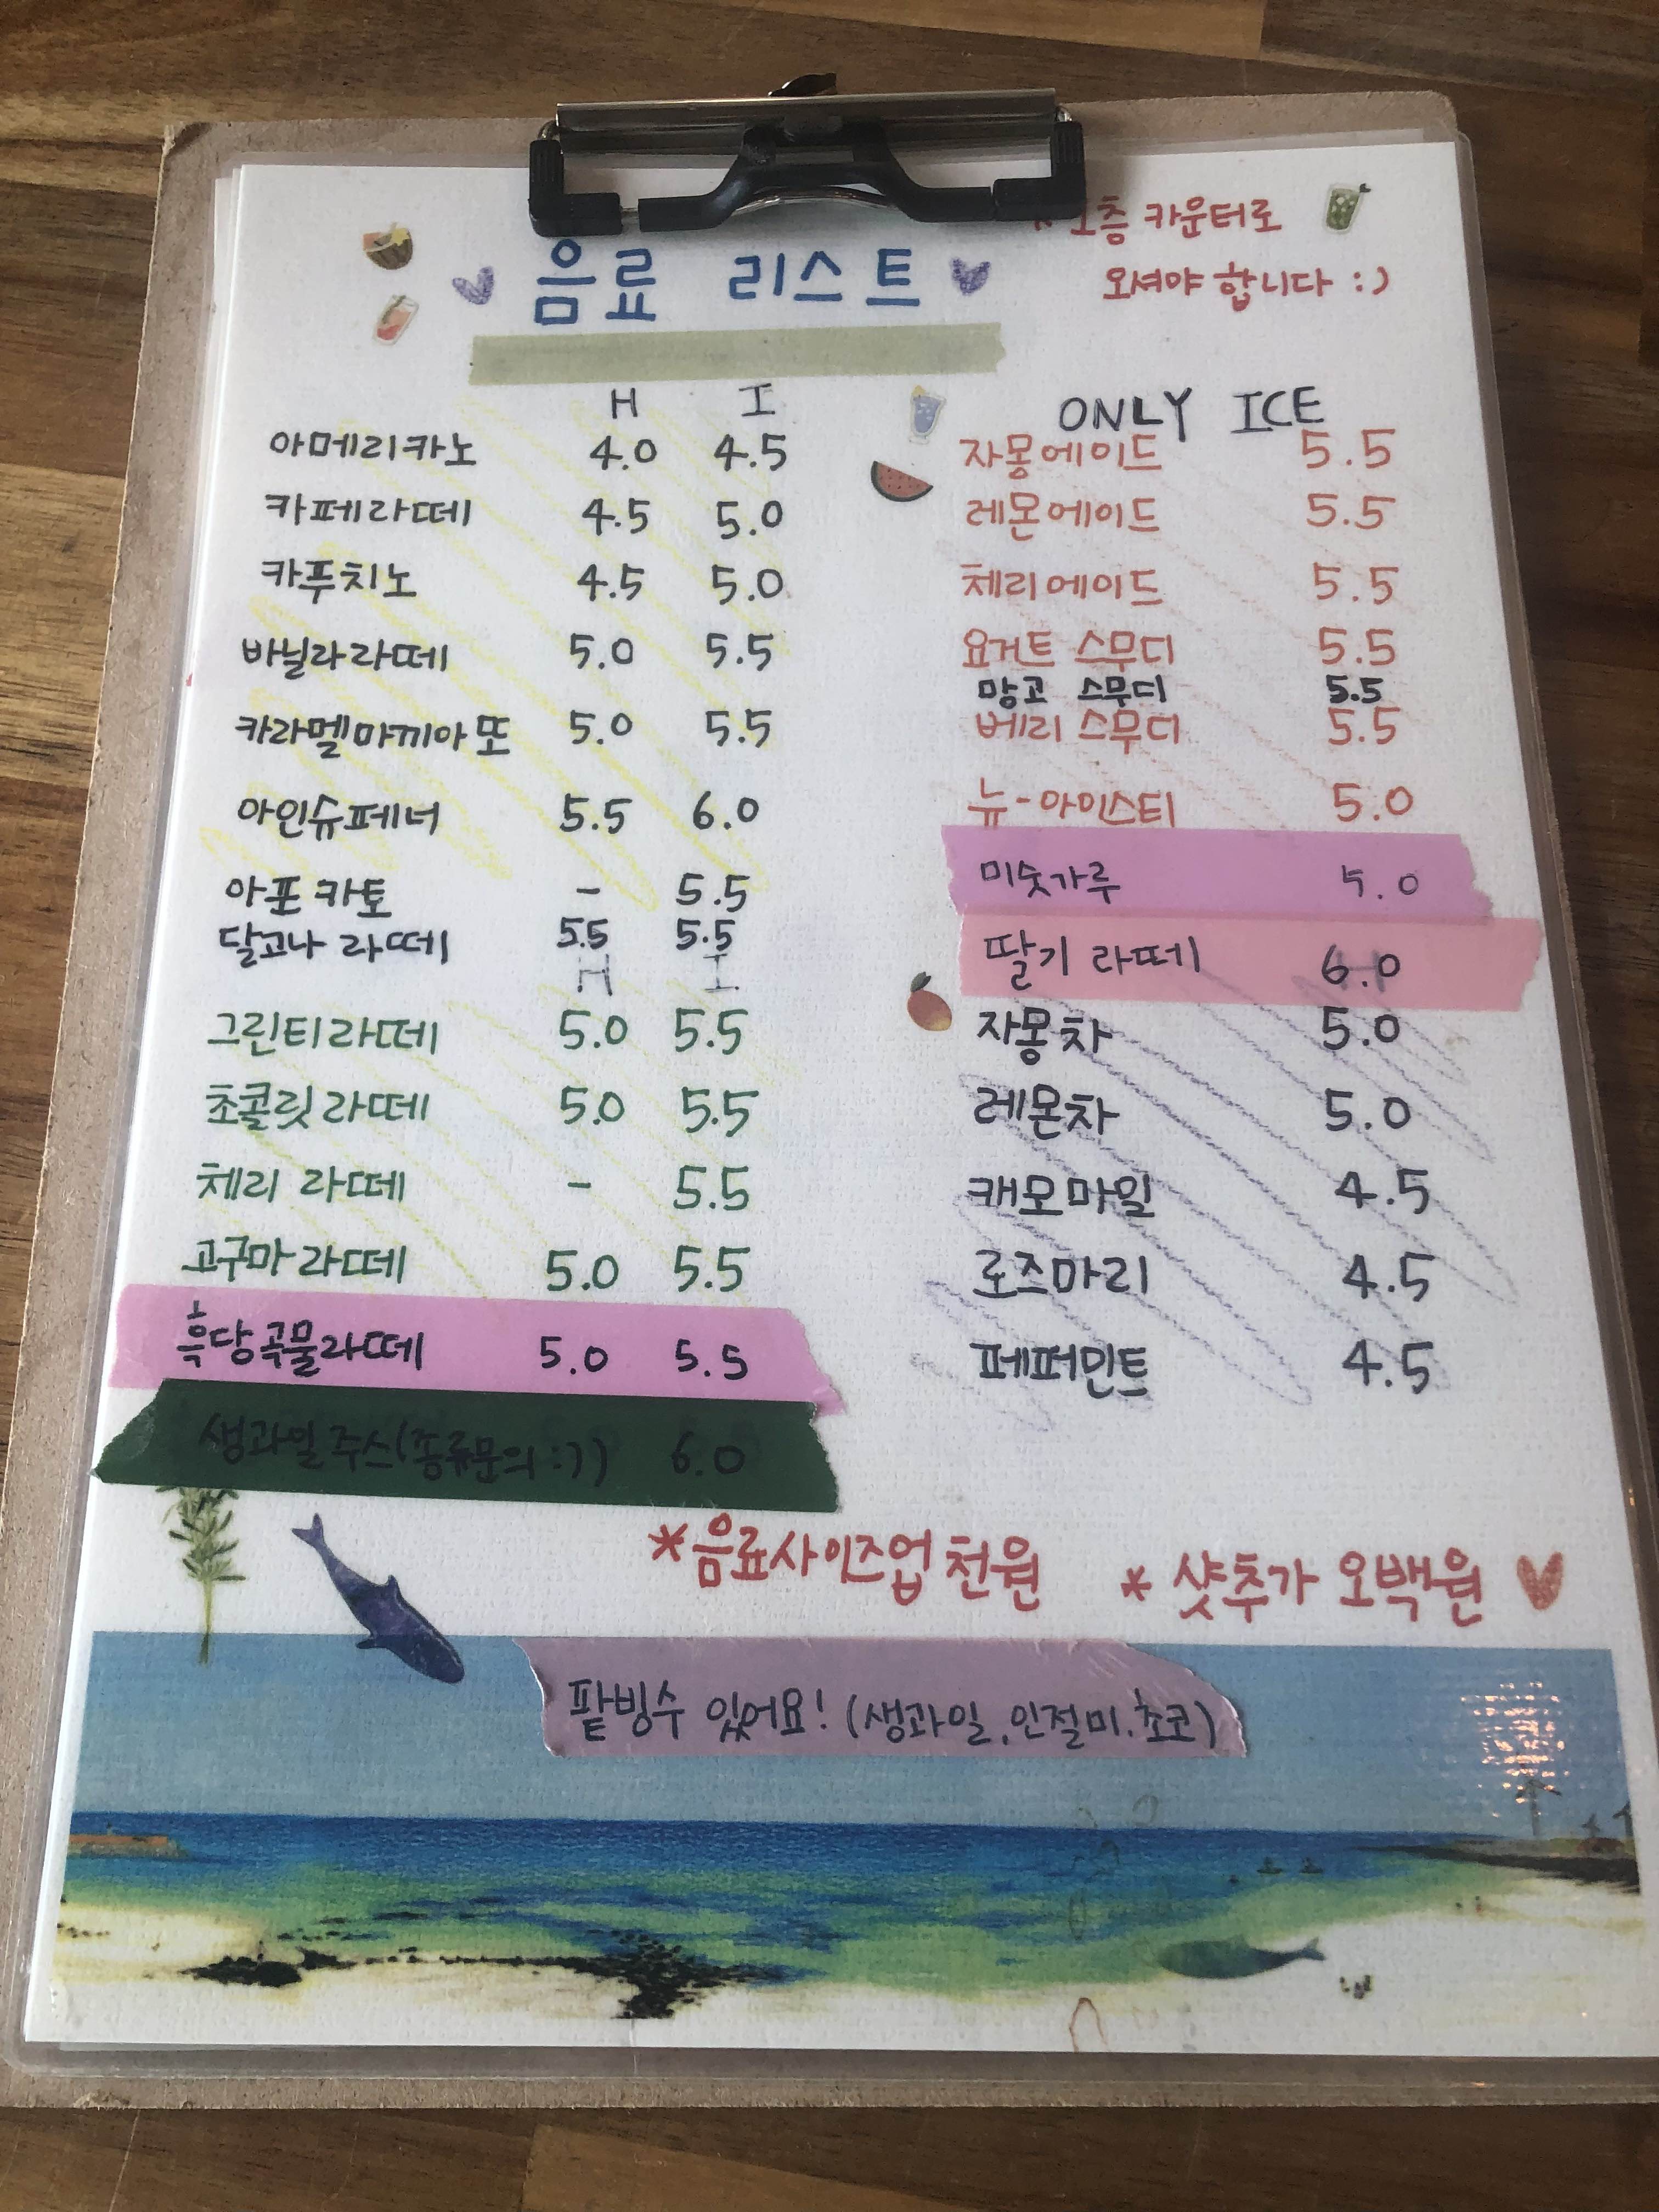 1층 카운터로
오셔야 합니다 :)
음료 리스트
H I
아메리카노 4.0 4.5
카페라떼 4.5 5.0
카푸치노 4.5 5.0
바닐라라떼 5.0 5.5
카라멜마끼아또 5.0 5.5
아인슈페너 5.5 6.0
아포카토 - 5.5
달고나 라떼 5.5 5.5
H I
그린티라떼 5.0 5.5
초콜릿라떼 5.0 5.5
체리 라떼 - 5.5
고구마라떼 5.0 5.5
흑당곡물라떼 5.0 5.5
생과일주스(종류문의:)) 6.0
ONLY ICE
자몽에이드 5.5
레몬에이드 5.5
체리에이드 5.5
요거트 스무디 5.5
망고 스무디 5.5
베리 스무디 5.5
뉴-아이스티 5.0
미숫가루 5.0
딸기 라떼 6.0
자몽차 5.0
레몬차 5.0
캐모마일 4.5
로즈마리 4.5
페퍼민트 4.5
*음료사이즈업 천원 * 샷추가 오백원
팥빙수 있어요! (생과일.인절미.초코)